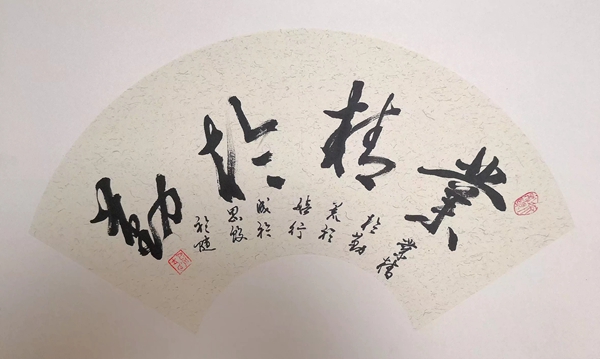 業精於勤
業精
於勤
荒於
嬉行
成於
思毁
於随